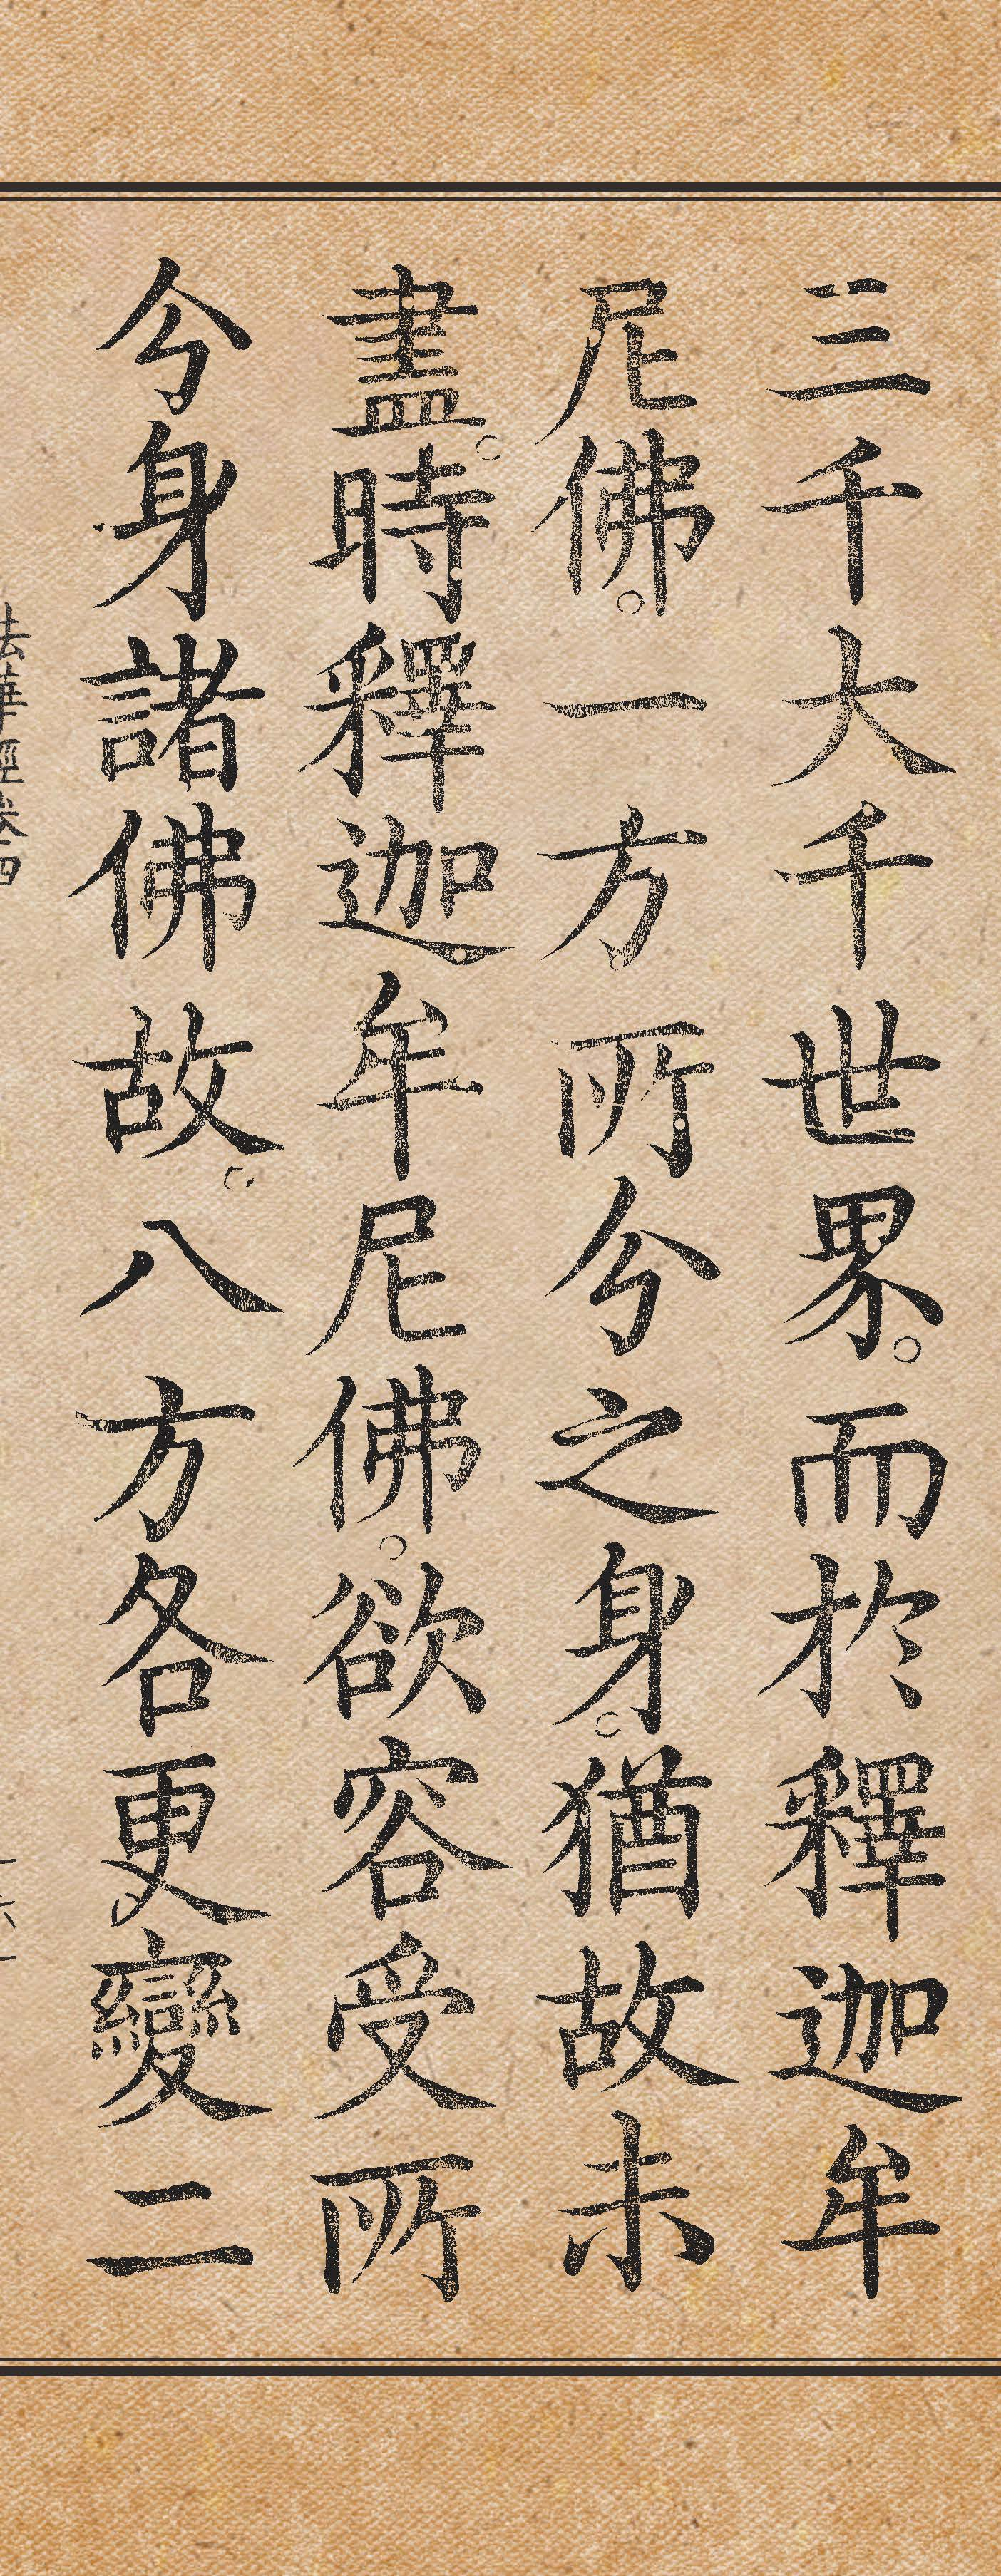 三千大千世界。而於釋迦牟
尼佛。一方所分之身。猶故未
盡。時釋迦牟尼佛。欲容受所
分身諸佛故。八方各更變二
法華經卷四